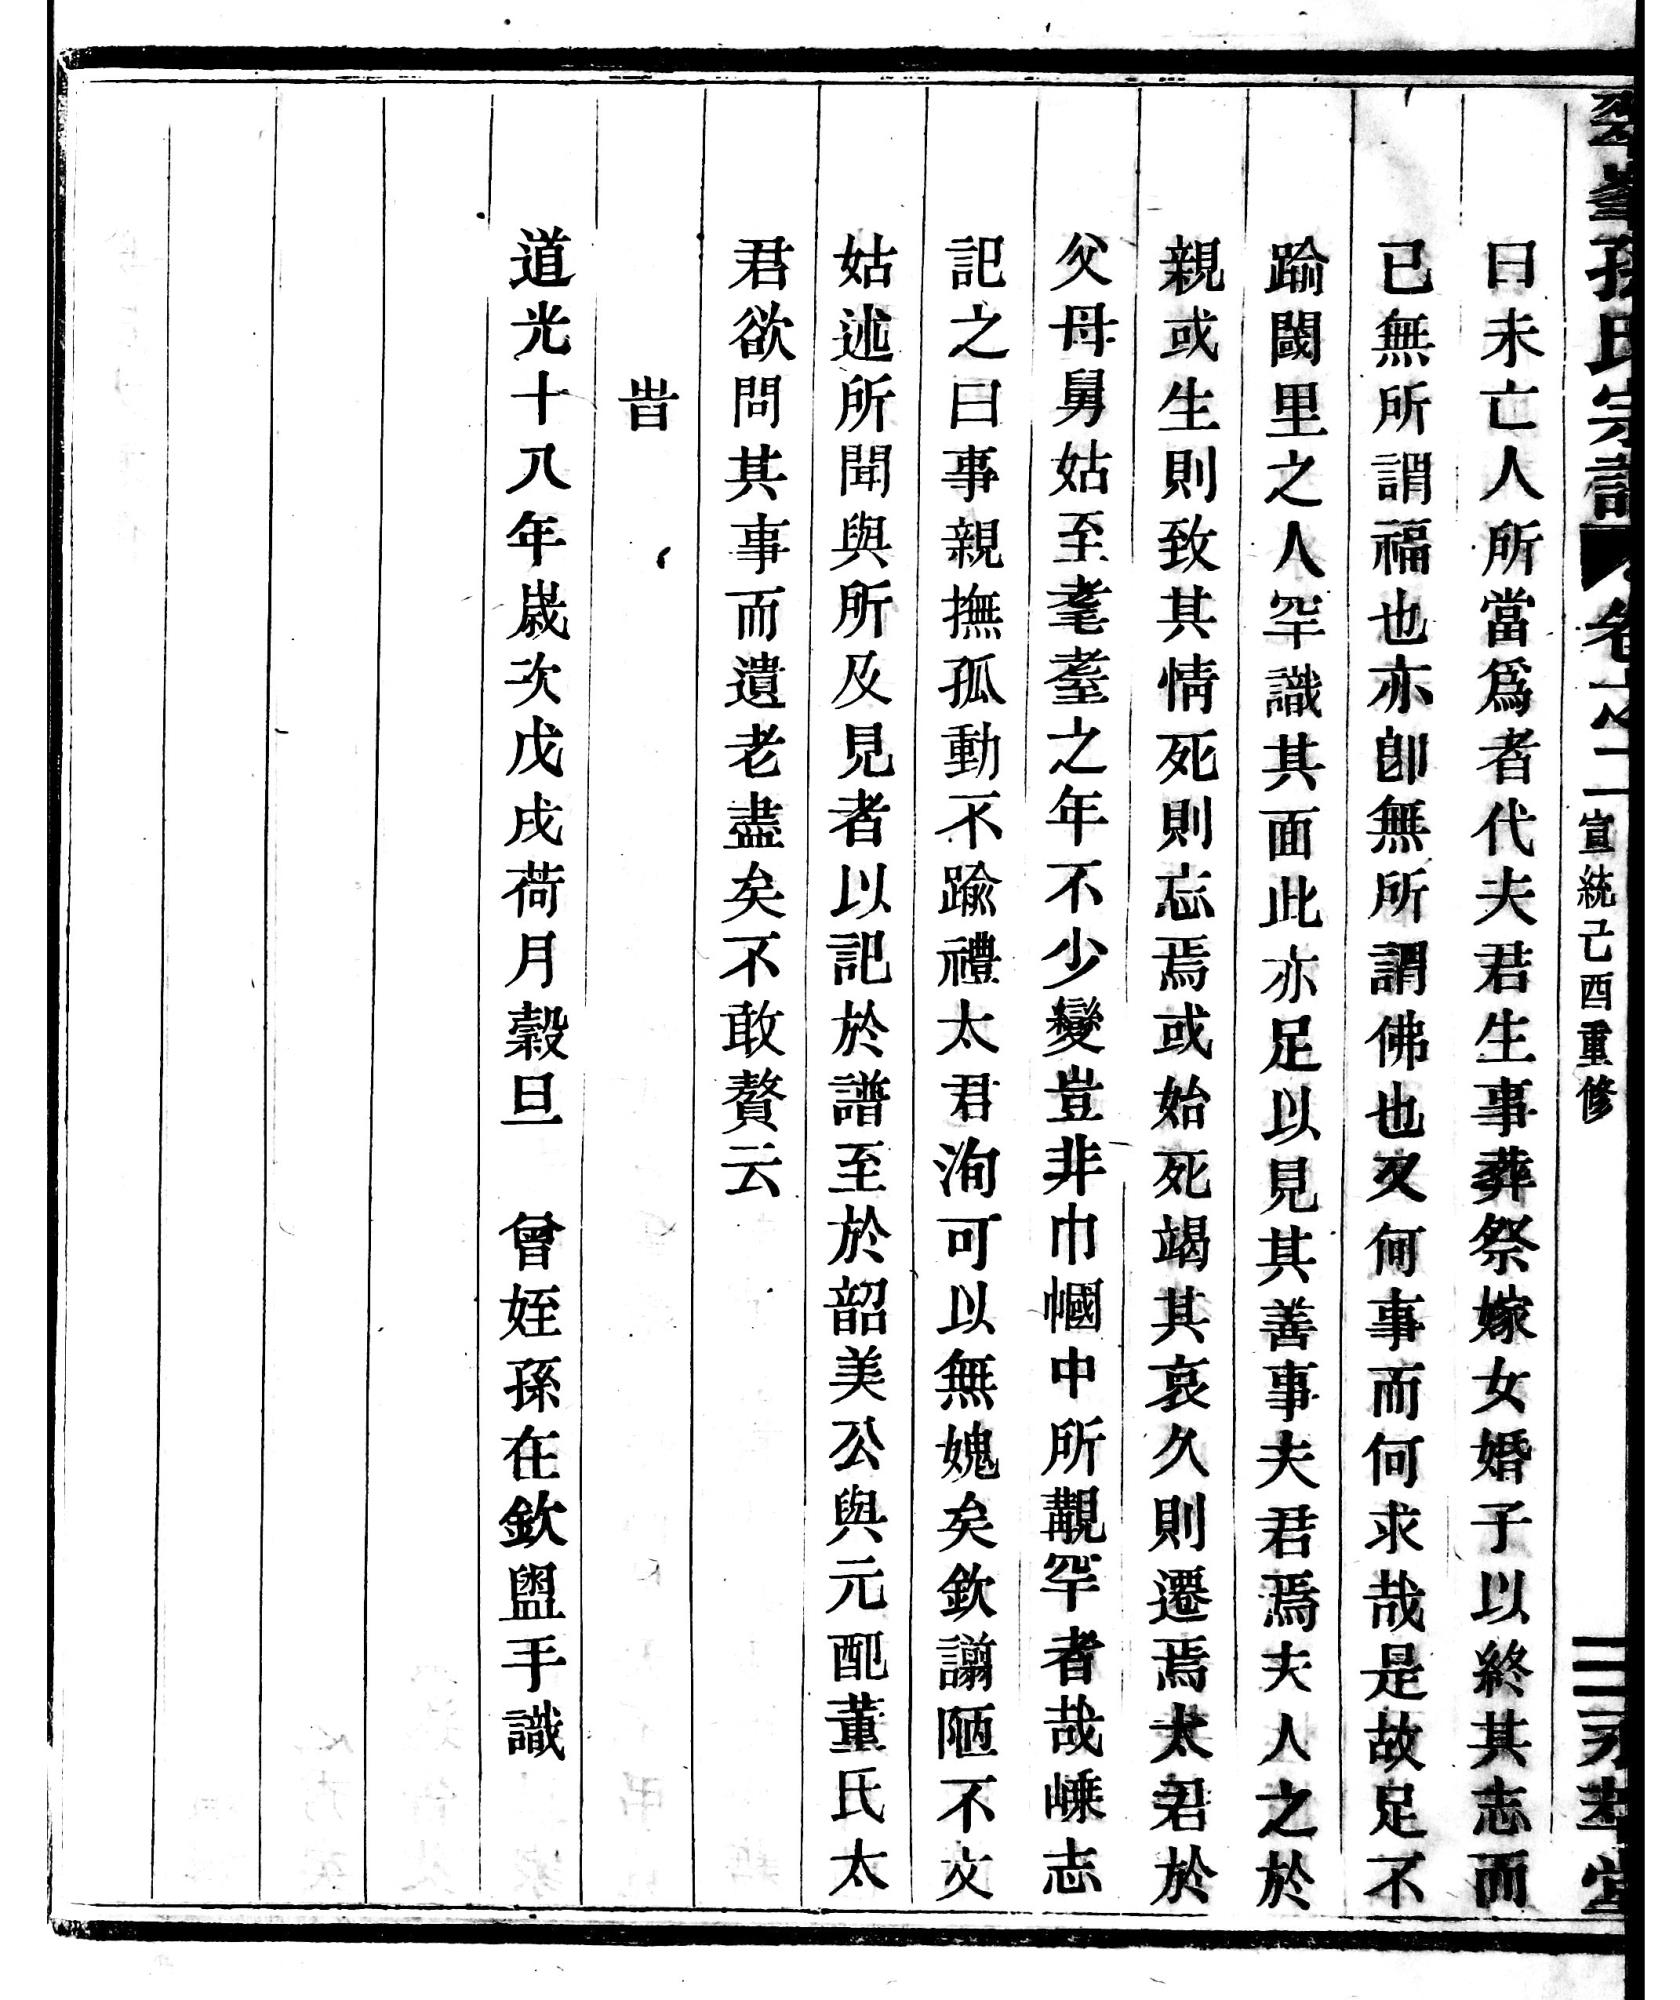 孫氏宗譜 卷之二 宣統己酉重修 二 永萃堂
曰未亡人所當爲者代夫君生事葬祭嫁女婚子以終其志而
已無所謂福也亦卽無所謂佛也又何事而何求哉是故足不
踰閾里之人罕識其面此亦足以見其善事夫君焉夫人之於
親或生則致其情死則忘焉或始死竭其哀久則遷焉太君於
父母舅姑至耄耋之年不少變豈非巾幗中所覯罕者哉嵊志
記之曰事親撫孤動不踰禮太君洵可以無媿矣欽謭陋不文
姑述所聞與所及見者以記於譜至於韶美公與元配董氏太
君欲問其事而遺老盡矣不敢贅云
旹
道光十八年歲次戊戌荷月穀旦 曾姪孫在欽盥手識